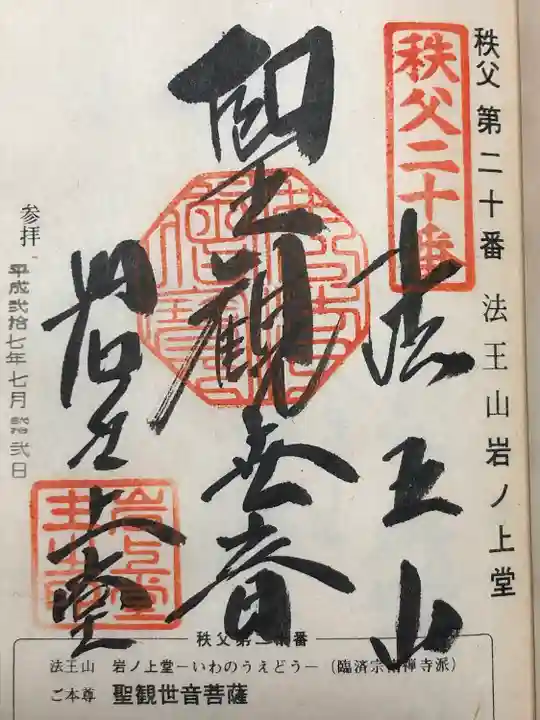 秩父 第二十番 法王山岩ノ上堂
秩父二十番
法王山
聖観世音
岩之上堂
参拝 平成弐拾七年七月弐拾弐日
秩父第二十番
法王山 岩ノ上堂－いわのうえどう－(臨済宗南禅寺派)
ご本尊 聖観世音菩薩